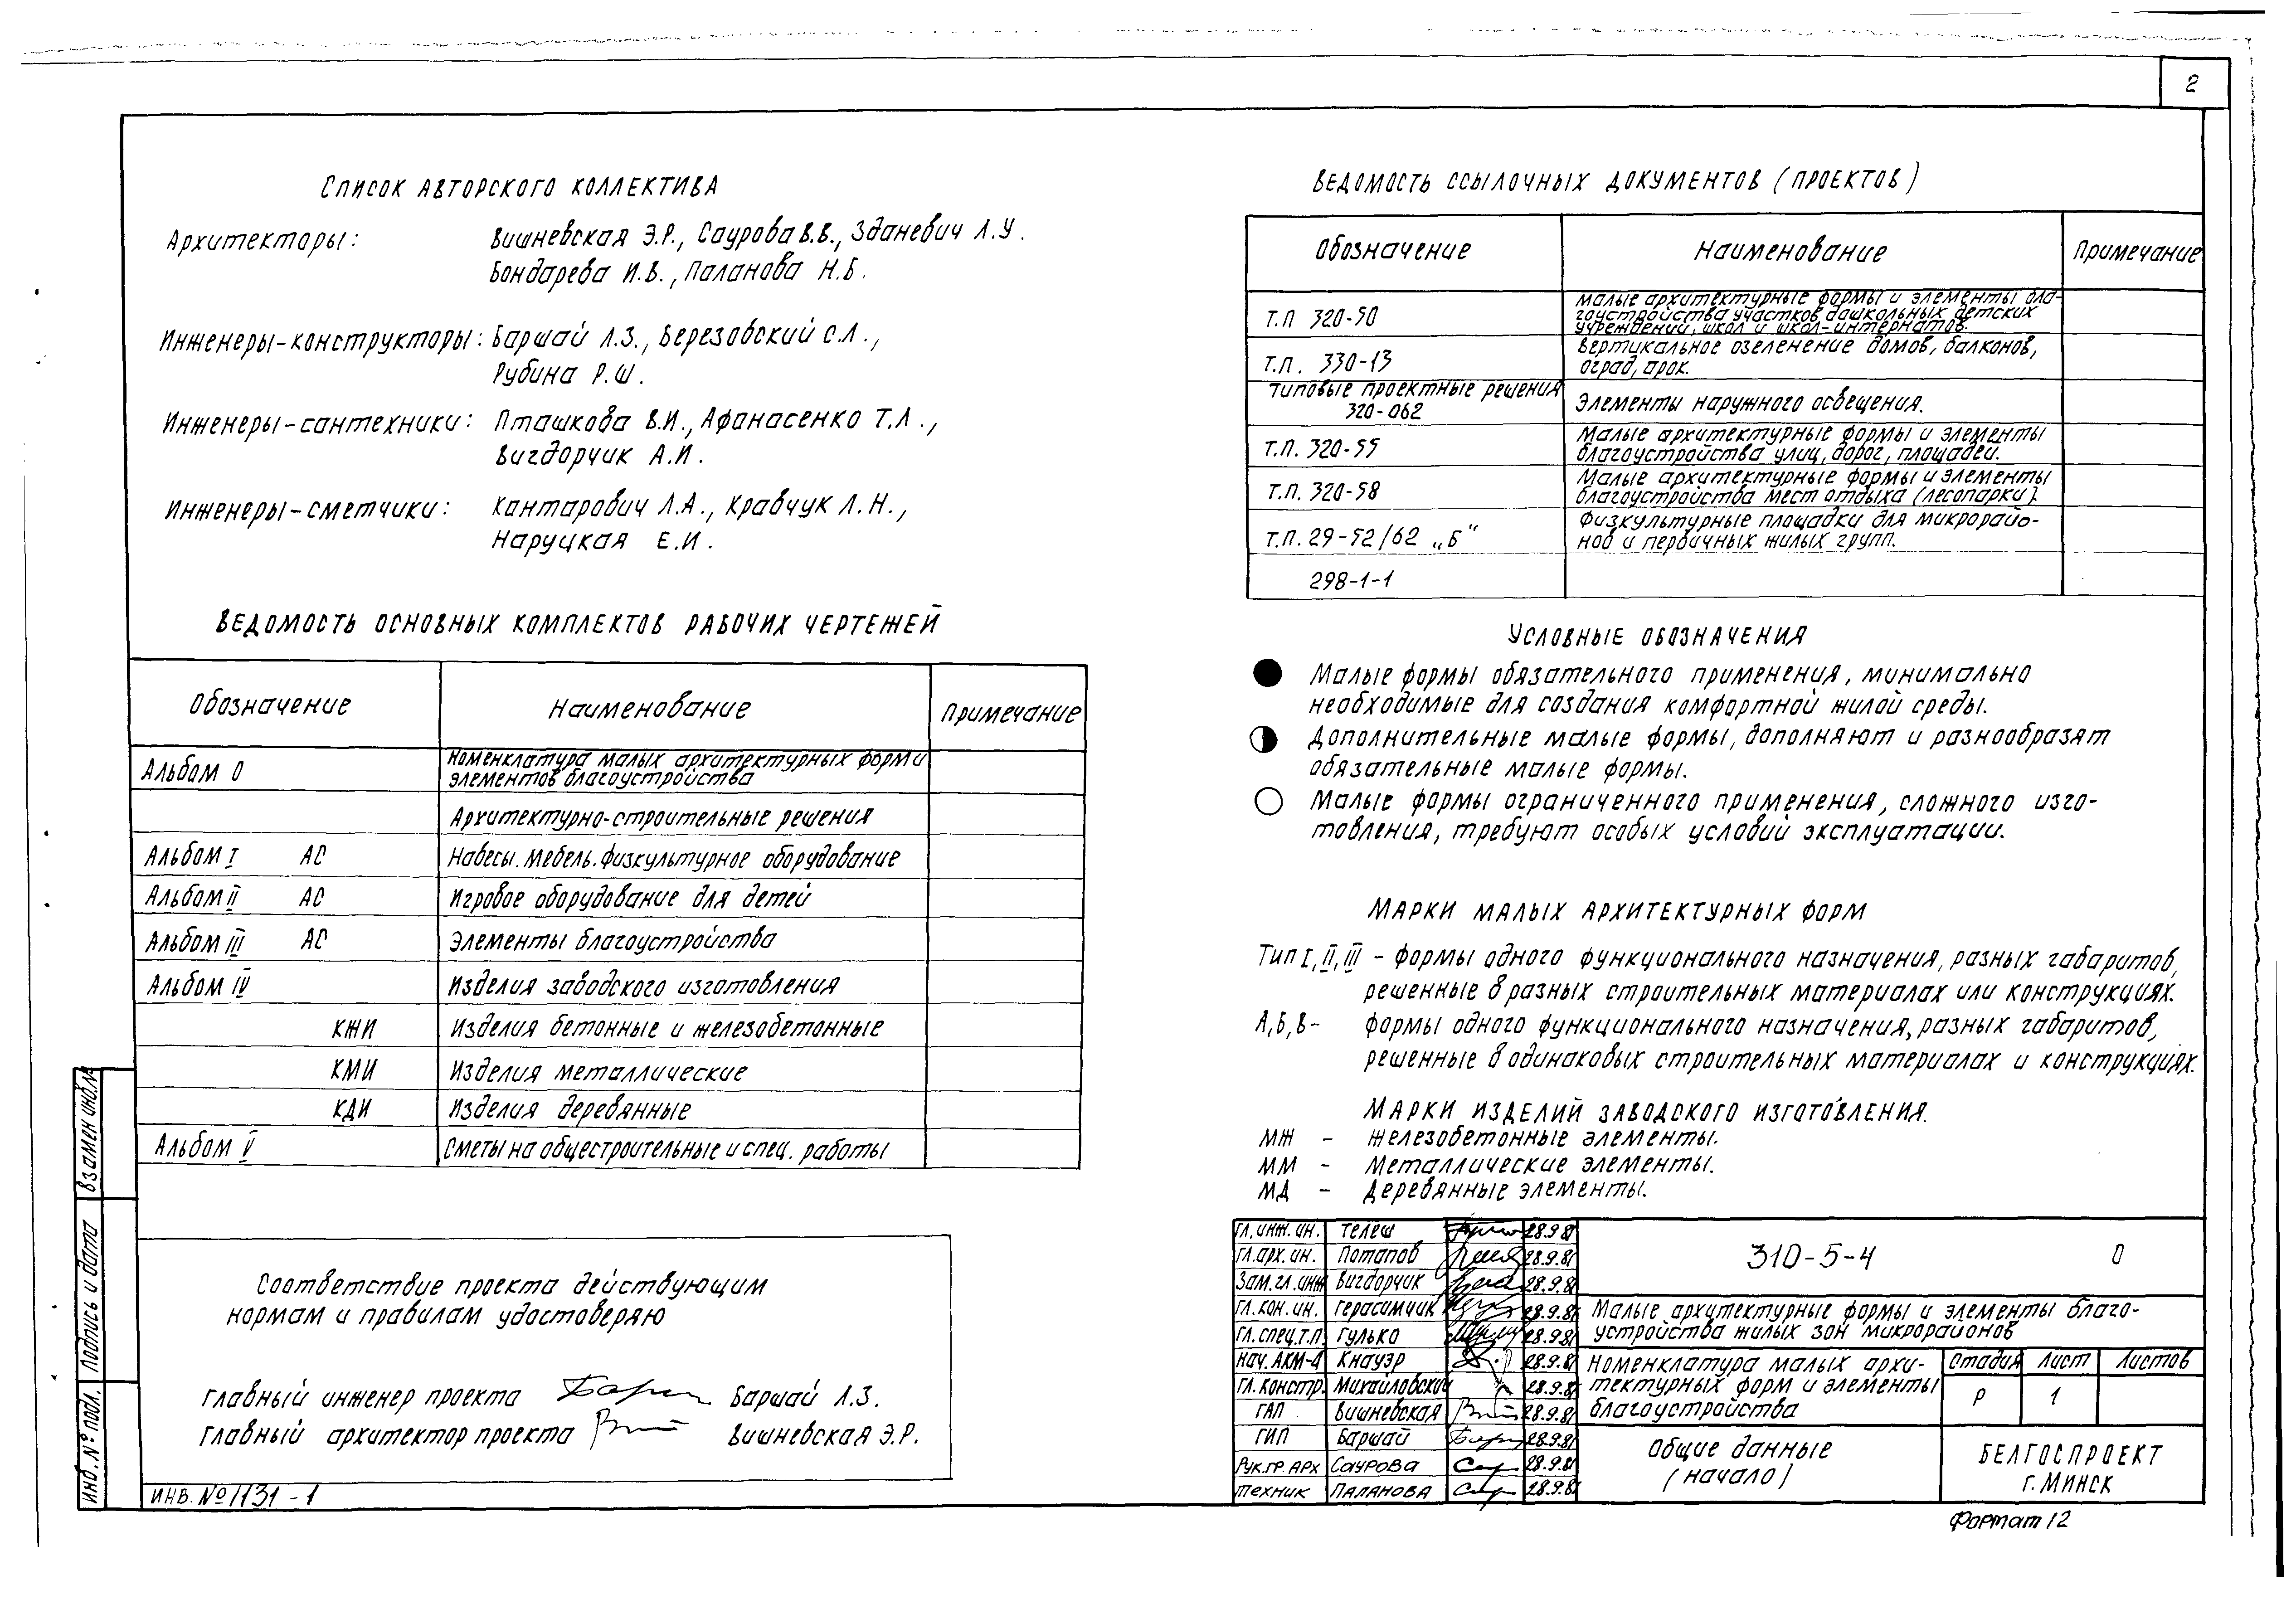 2
Список авторского коллектива
Архитекторы: Вишневская Э.Р., Саурова В.В., Зданевич Л.У.
Бондарева И.В., Паланова Н.Б.
Инженеры-конструкторы: Баршай Л.З., Березовский С.Л.,
Рубина Р.Ш.
Инженеры-сантехники: Пташкова В.И., Афанасенко Т.Л.,
Вигдорчик А.И.
Инженеры-сметчики: Кантарович Л.А., Кравчук Л.Н.,
Наруцкая Е.И.
Ведомость основных комплектов рабочих чертежей
Обозначение Наименование Примечание
Альбом 0 Номенклатура малых архитектурных форм и
элементов благоустройства
Архитектурно-строительные решения
Альбом I АС Навесы. Мебель. Физкультурное оборудование
Альбом II АС Игровое оборудование для детей
Альбом III АС Элементы благоустройства
Альбом IV Изделия заводского изготовления
КЖИ Изделия бетонные и железобетонные
КМИ Изделия металлические
КДИ Изделия деревянные
Альбом V Сметы на общестроительные и спец. работы
Соответствие проекта действующим
нормам и правилам удостоверяю
Главный инженер проекта Баршай Л.З.
Главный архитектор проекта Вишневская Э.Р.
Инв. № 1131-1
Взамен инв.№
Подпись и дата
Инв. № подл.
Ведомость ссылочных документов (проектов)
Обозначение Наименование Примечание
Т.П 320-50 Малые архитектурные формы и элементы бла-
гоустройства участков дошкольных детских
учреждений, школ и школ-интернатов.
Т.П. 330-13 Вертикальное озеленение домов, балконов,
оград, арок.
Типовые проектные решения
320-062 Элементы наружного освещения.
Т.П. 320-55 Малые архитектурные формы и элементы
благоустройства улиц, дорог, площадей.
Т.П. 320-58 Малые архитектурные формы и элементы
благоустройства мест отдыха (лесопарки).
Т.П. 29-52/62 „Б“ Физкультурные площадки для микрорайо-
нов и первичных жилых групп.
298-1-1
Условные обозначения
Малые формы обязательного применения, минимально
необходимые для создания комфортной жилой среды.
Дополнительные малые формы, дополняют и разнообразят
обязательные малые формы.
Малые формы ограниченного применения, сложного изго-
товления, требуют особых условий эксплуатации.
Марки малых архитектурных форм
Тип I, II, III - формы одного функционального назначения, разных габаритов,
решенные в разных строительных материалах или конструкциях.
А, Б, В- формы одного функционального назначения, разных габаритов,
решенные в одинаковых строительных материалах и конструкциях.
Марки изделий заводского изготовления.
МЖ - Железобетонные элементы.
ММ - Металлические элементы.
МД - Деревянные элементы.
Гл. инж. ин. Телеш 28.9.81
Гл. арх. ин. Потапов 28.9.81
Зам. гл. инж Вигдорчик 28.9.81
Гл. кон. ин. Герасимчик 28.9.81
Гл. спец. т.п. Гулько 28.9.81
Нач. АКМ-4 Кнауэр 28.9.81
Гл. констр. Михайловский 28.9.81
ГАП Вишневская 28.9.81
ГИП Баршай 28.9.81
Рук. гр. арх Саурова 28.9.81
Техник Паланова 28.9.81
310-5-4 0
Малые архитектурные формы и элементы благо-
устройства жилых зон микрорайонов
Номенклатура малых архи-
тектурных форм и элементы
благоустройства
Стадия Лист Листов
Р 1
Общие данные
(начало)
БЕЛГОСПРОЕКТ
г. МИНСК
Формат 12